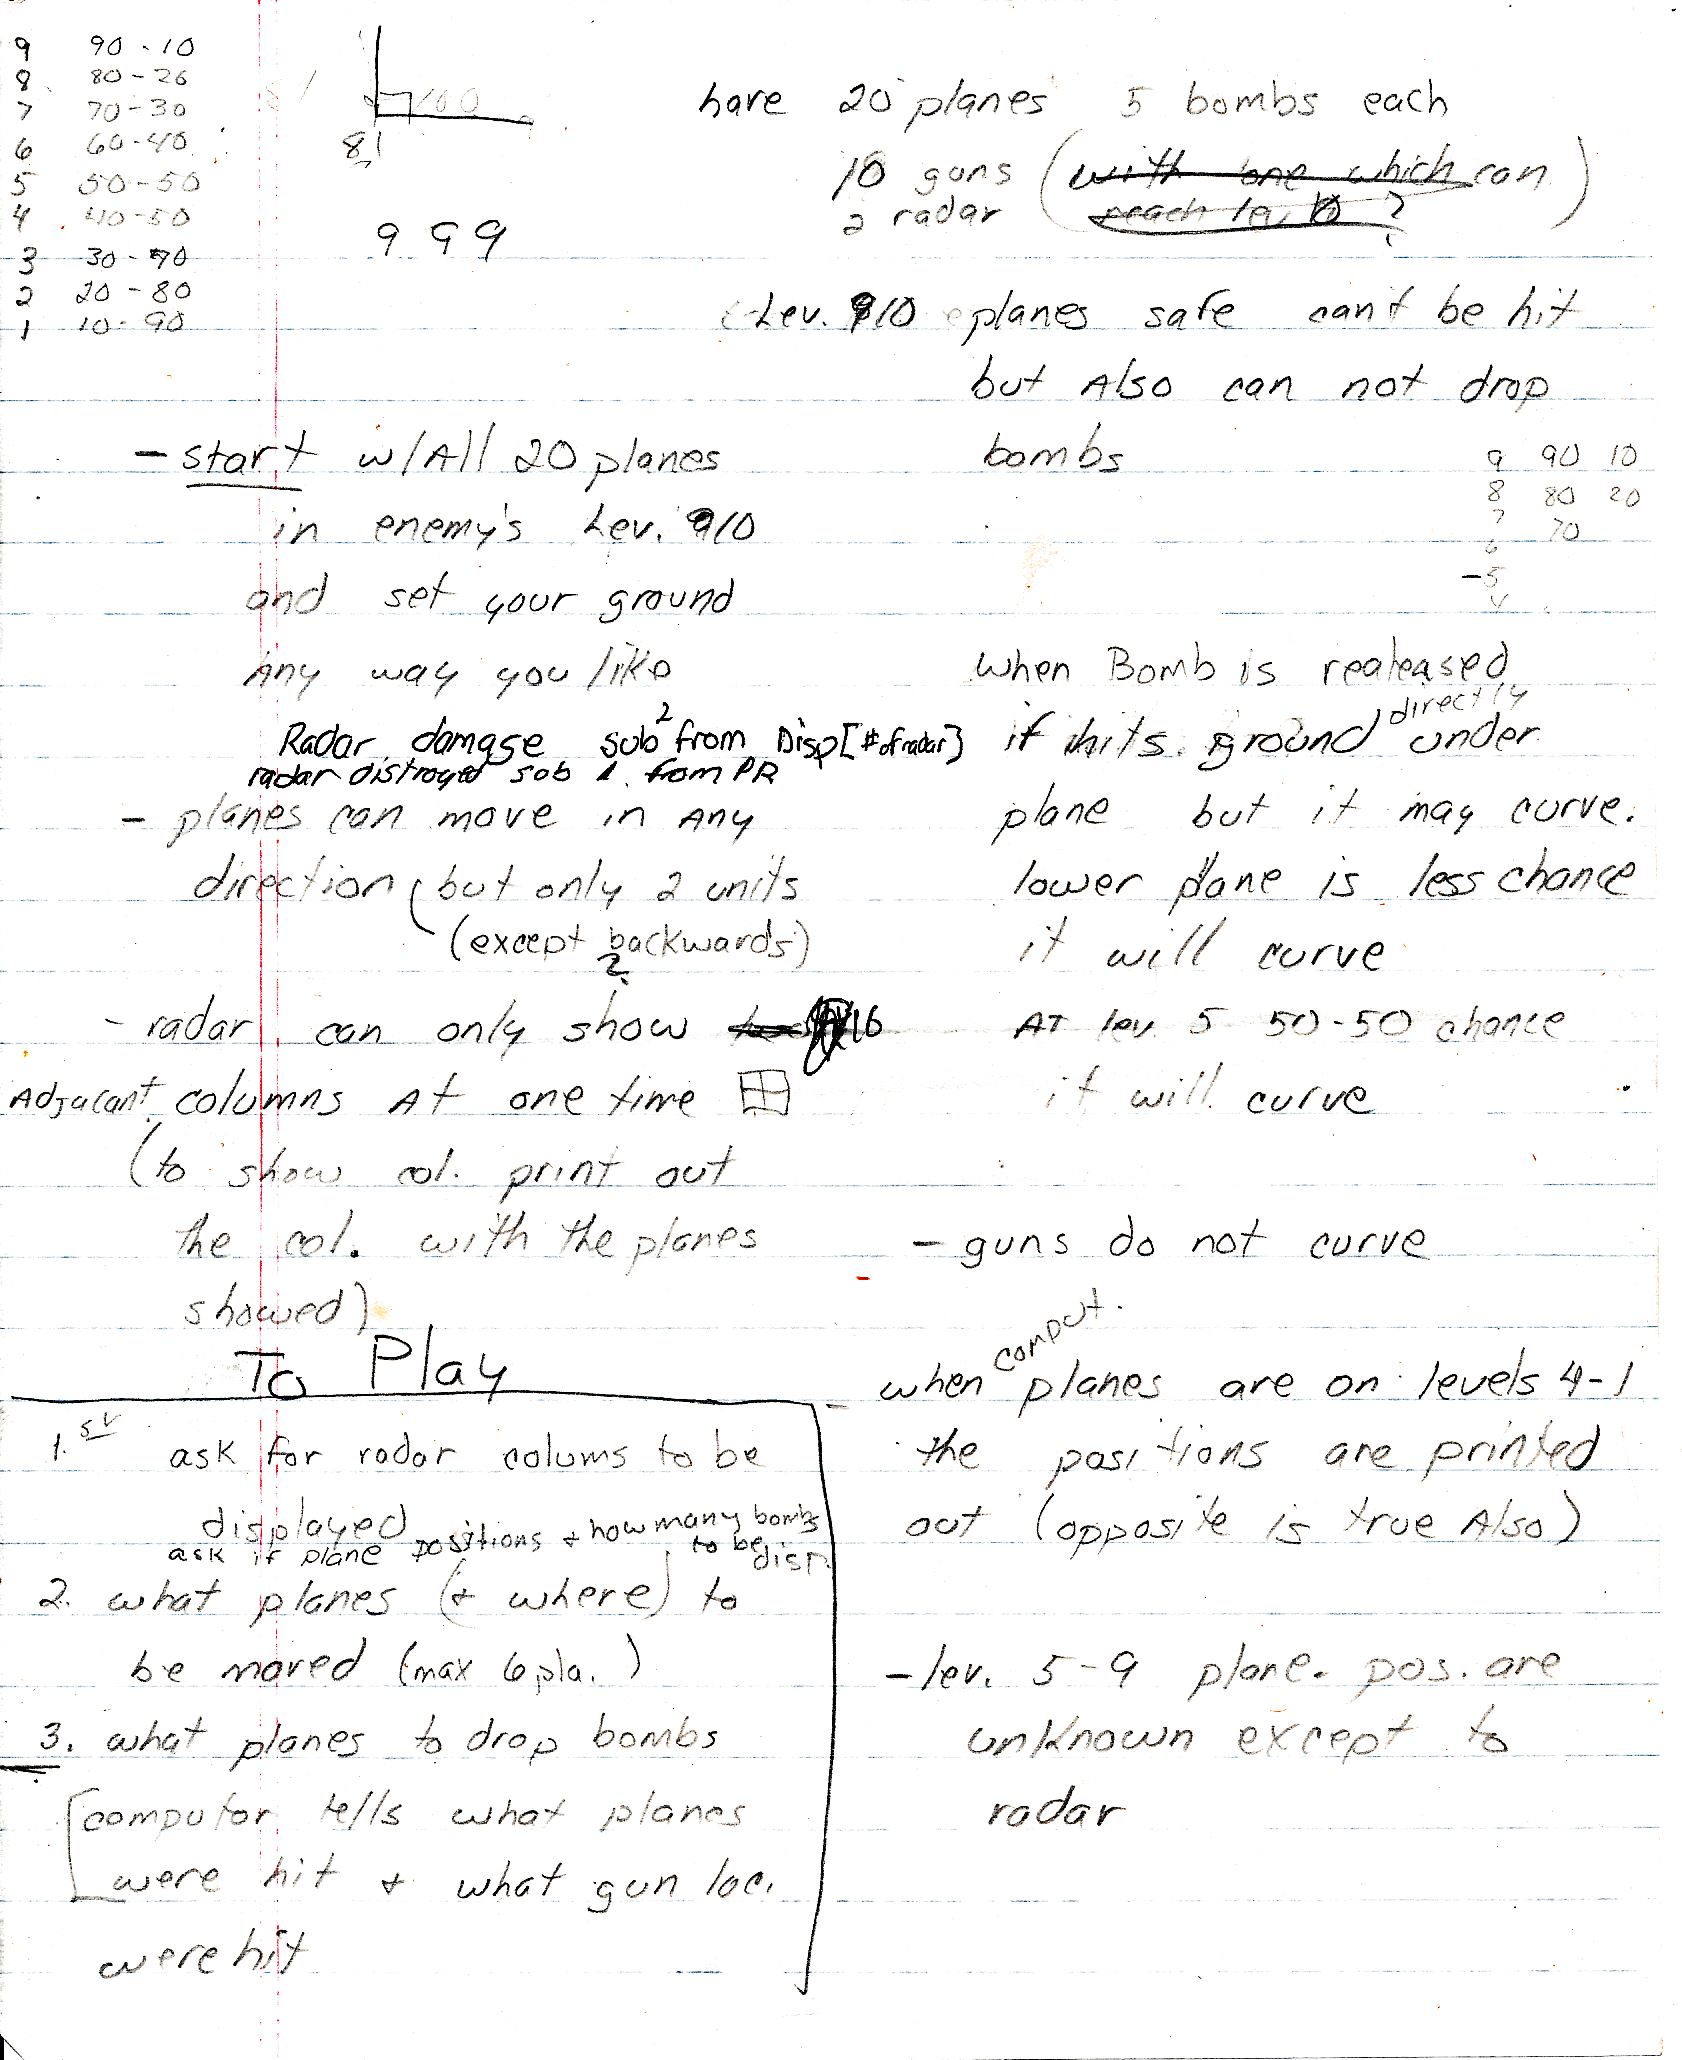 9 90-10
8 80-26
7 70-30
6 60-40
5 50-50
4 40-50
3 30-70
2 20-80
1 10-90
100
81
9 9 9
have 20 planes 5 bombs each
10 guns (with one which can)
2 radar reach lev 10 ?
Lev. 910 planes safe can't be hit
but Also can not drop
bombs
9 90 10
8 80 20
7 70
6
-5
4
- start w/All 20 planes
in enemy's Lev. 910
and set your ground
Any way you like
Radar damage sub 2 from Disp[# of radar]
radar distroyed sub 1 from PR
- planes can move in Any
direction (but only 2 units
(except backwards)
?
- radar can only show 16
Adjacant columns At one time
(to show col. print out
the col. with the planes
showed)
when Bomb is realeased
it hits ground directly under
plane but it may curve.
lower plane is less chance
it will curve
AT lev 5 50-50 chance
it will curve
- guns do not curve
when comput. planes are on levels 4-1
the positions are printed
out (opposite is true Also)
- lev. 5-9 plane. pos. are
unknown except to
radar
To Play
1.st ask for radar colums to be
displayed
ask if plane positions + how many bombs
to be disp.
2. what planes (+ where) to
be moved (max 6 pla. )
3. what planes to drop bombs
[computor tells what planes
were hit + what gun loc.
were hit